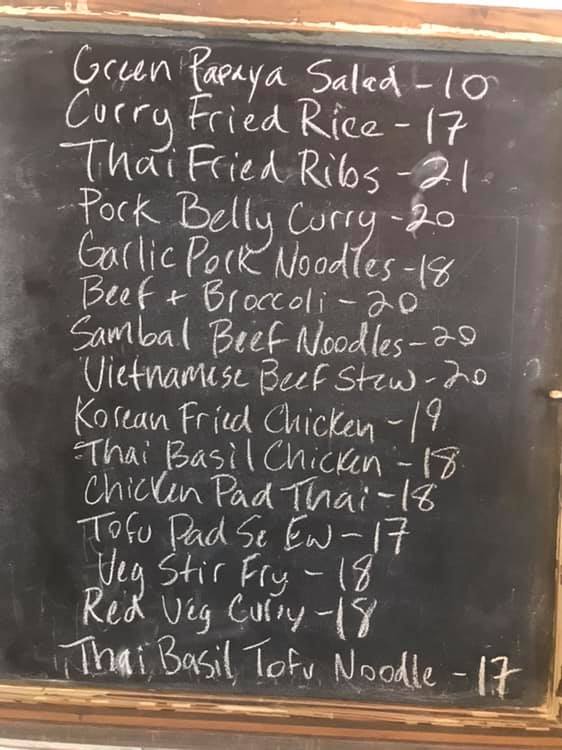 Green Papaya Salad - 10
Curry Fried Rice - 17
Thai Fried Ribs - 21
Pork Belly Curry - 20
Garlic Pork Noodles - 18
Beef + Broccoli - 20
Sambal Beef Noodles - 20
Vietnamese Beef Stew - 20
Korean Fried Chicken - 19
Thai Basil Chicken - 18
Chicken Pad Thai - 18
Tofu Pad Se Ew - 17
Veg Stir Fry - 18
Red Veg Curry - 18
Thai Basil Tofu Noodle - 17